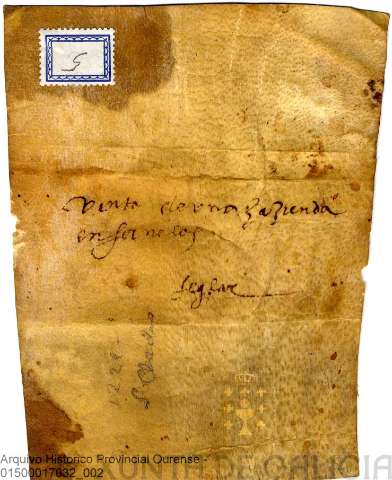 5
Vinta de vna hazienda
en fornelos
seglar
1228
Arquivo Historico Provincial Ourense -
01500017032_002
XUNTA DE GALICIA